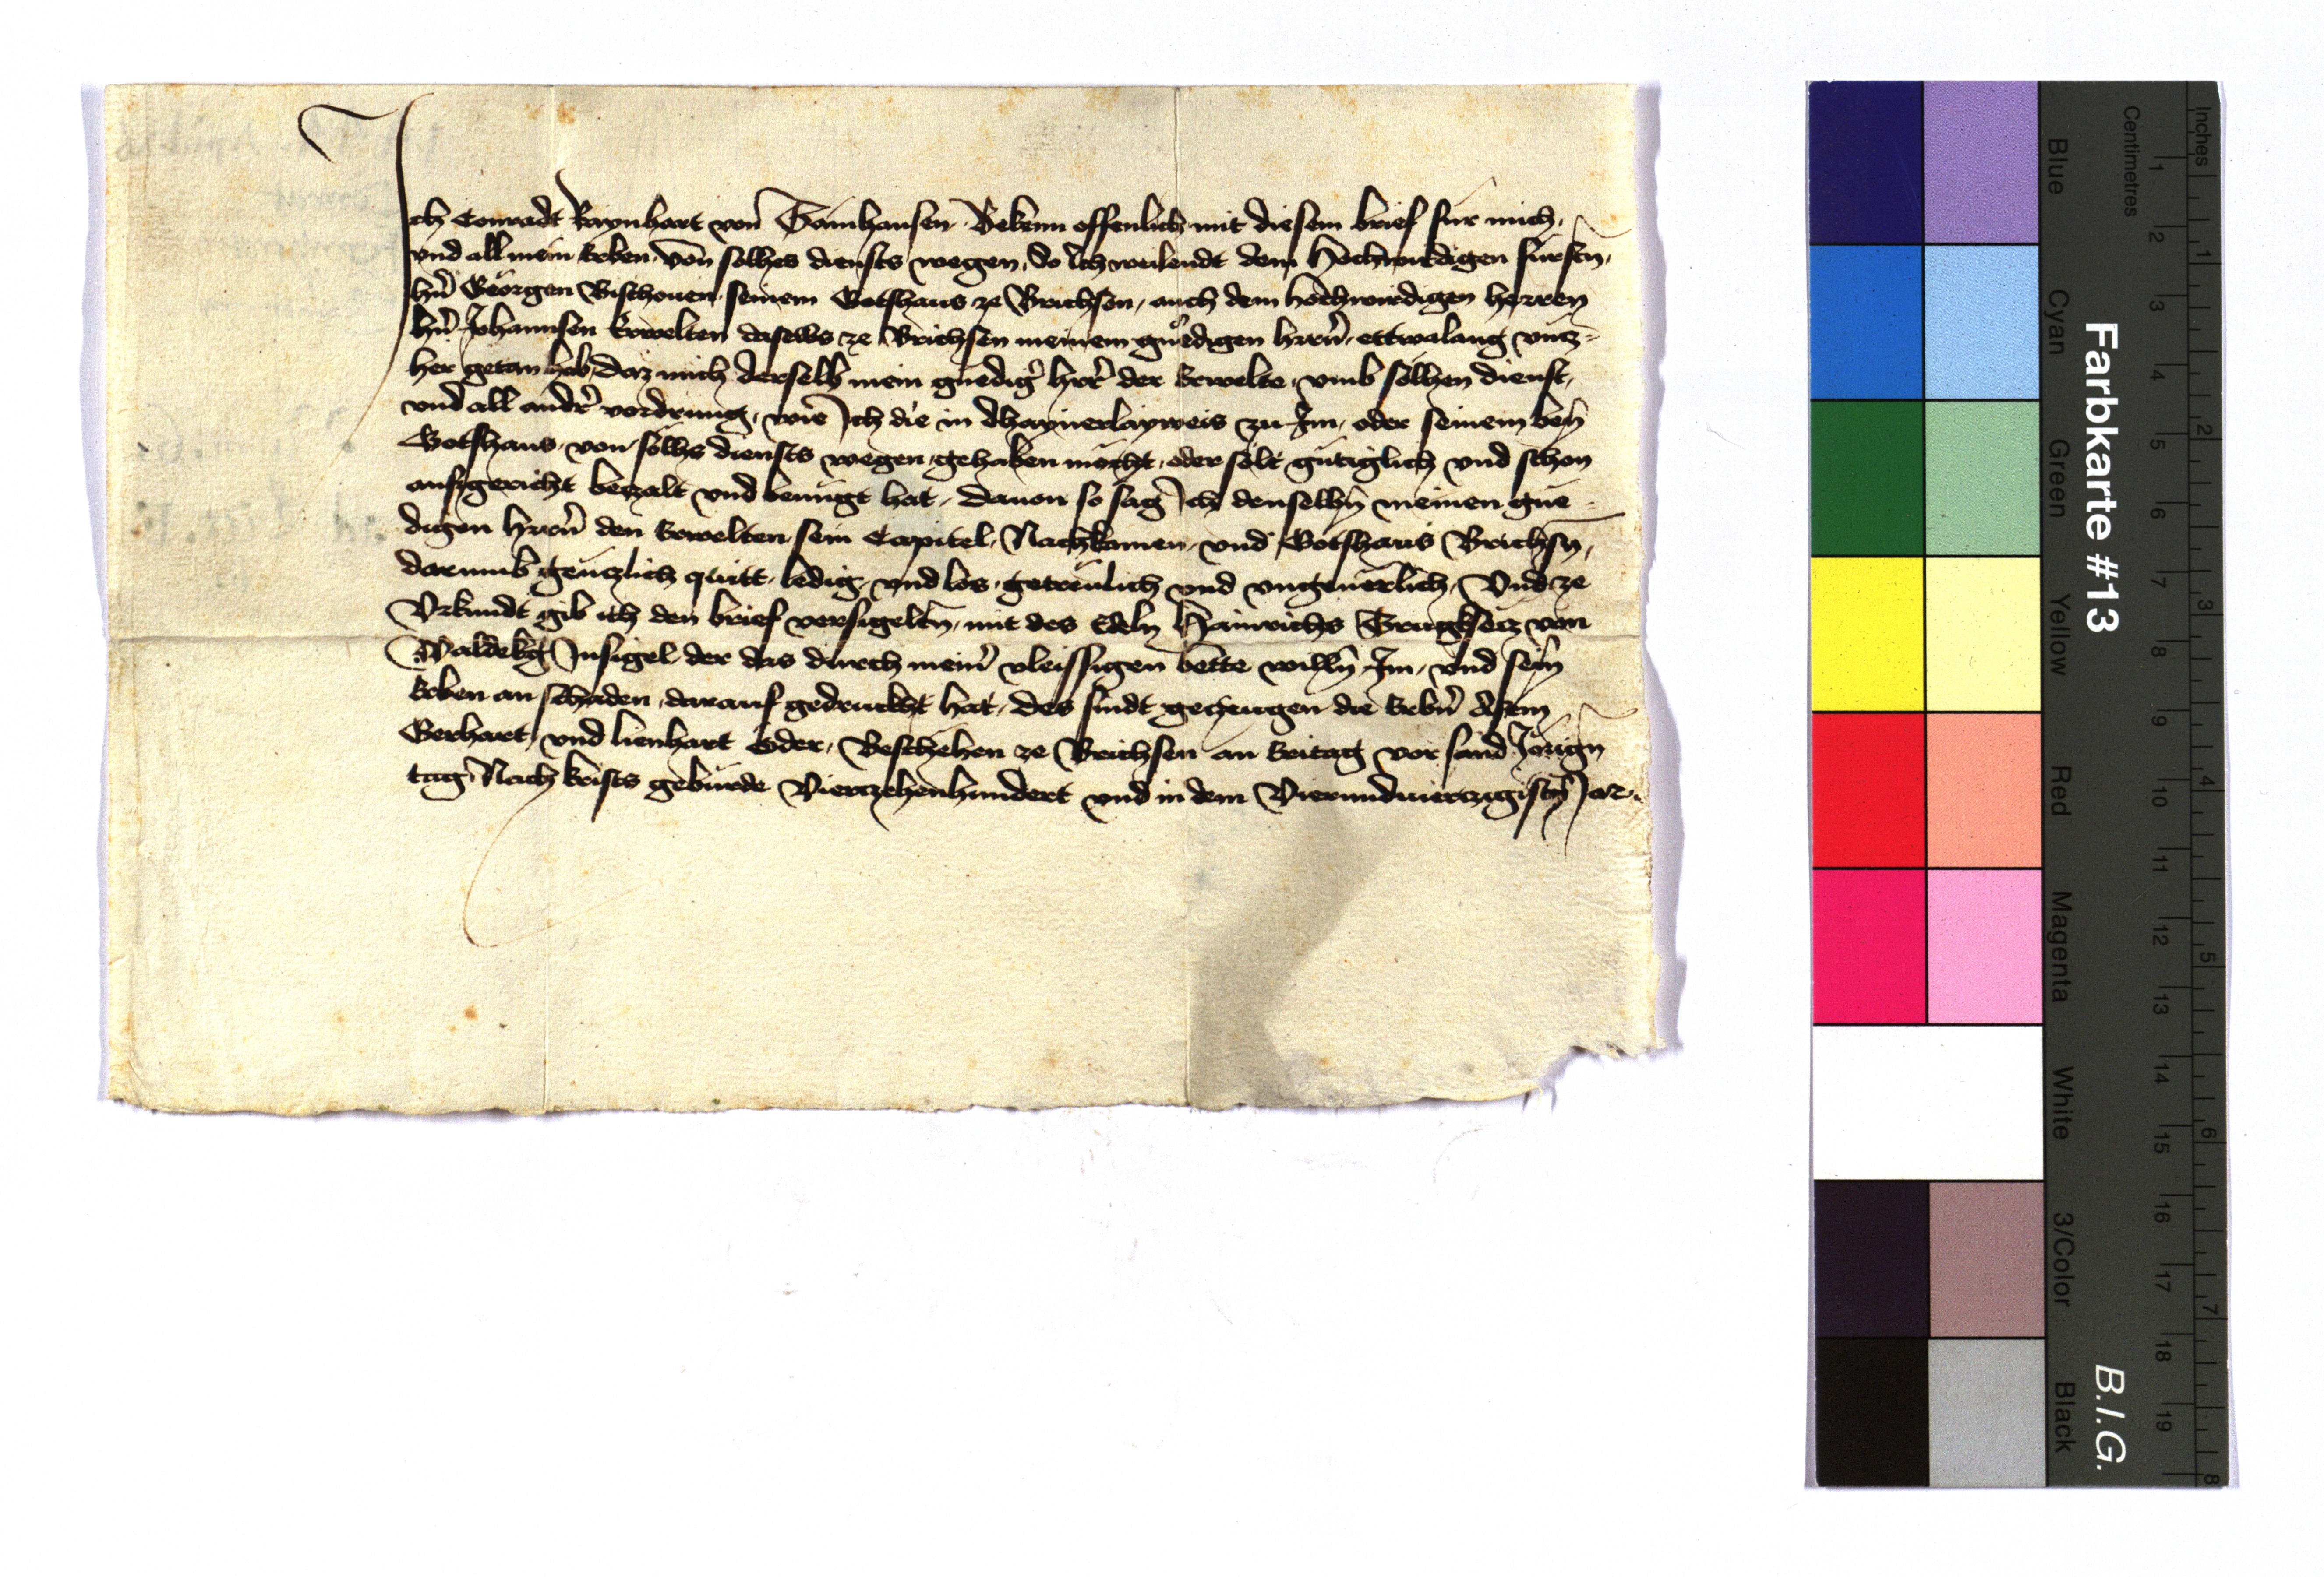 Ich Conradt Raynhart von Tainhausen Bekenn offenlich mit diesem brief fur mich,
vnd all mein Erben, von solhes diensts wegen, So Ich weilendt dem Hochwirdigen fursten,
hrn Georgen Bischouen seinem Gotshaus ze Brichsen, auch dem hochwirdigen herren
hrn Johannsen Erwelten daselbs ze Brichsen meinem gnedigen hrrn, ettwalang vncz-
her getan hab, daz mich derselb mein gnedigr hrr der Erwelte, vmb solhen dienst,
vnd all andr vordrung, wie Ich die in dhainerlayweis zu Im, oder seinem
Gotshaus, von solhs diensts wegen, gehaben mocht, oder solt gutiglich vnd schon
ausgericht beczalt vnd benugt hat, dauon so sag Ich denselbn meinen gne-
digen hrrn den Erwelten sein Capitel, Nachkamen, vnd Gotshaus Brichsn,
darumb genczlich quitt, ledig, vnd los, getreulich vnd vngeuerlich, Vnd ze
Vrkundt gib ich den brief versigeltn, mit des Edeln Hainrichs Trugksecz von
Insigel der das durch meinr vleissigen bette willn Im, vnd sein
Erben an schaden, darauf gedruckht hat, des sindt geczeugen die Erbn
Gerhart, vnd lienhart Eder, Beschehen ze Brichsen an Eritag vor sand Jorign
tag, Nach krists geburde Vierczehenhundert vnd in dem Vierundvierczigistn Jar.
Farbkarte #13
B.I.G.
Inches
Centimetres
1 2 3 4 5 6 7 8 9 10 11 12 13 14 15 16 17 18 19
1 2 3 4 5 6 7 8
Blue
Cyan
Green
Yellow
Red
Magenta
White
3/Color
Black